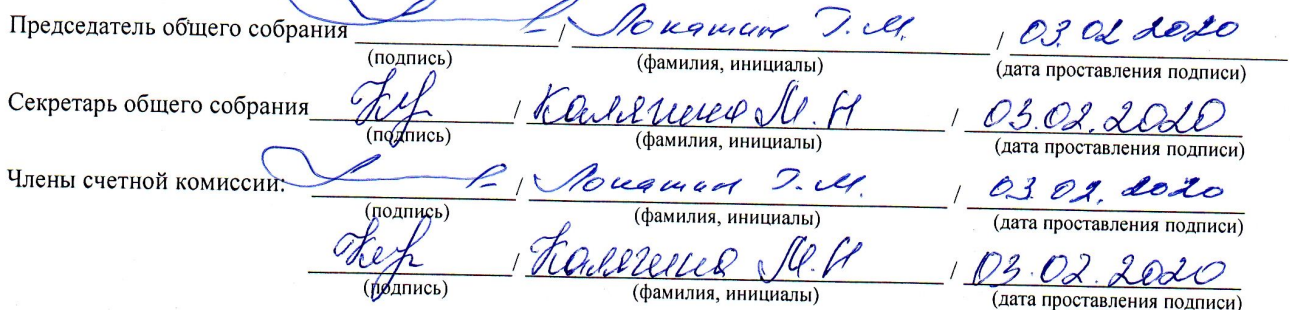 Председатель общего собрания / Локатин Э.М. / 03.02 2020
(подпись) (фамилия, инициалы) (дата проставления подписи)
Секретарь общего собрания / Калягина М.Н / 03.02.2020
(подпись) (фамилия, инициалы) (дата проставления подписи)
Члены счетной комиссии: / Э.М. / 03.02.2020
(подпись) (фамилия, инициалы) (дата проставления подписи)
/ Калягина М.Н / 03.02.2020
(подпись) (фамилия, инициалы) (дата проставления подписи)